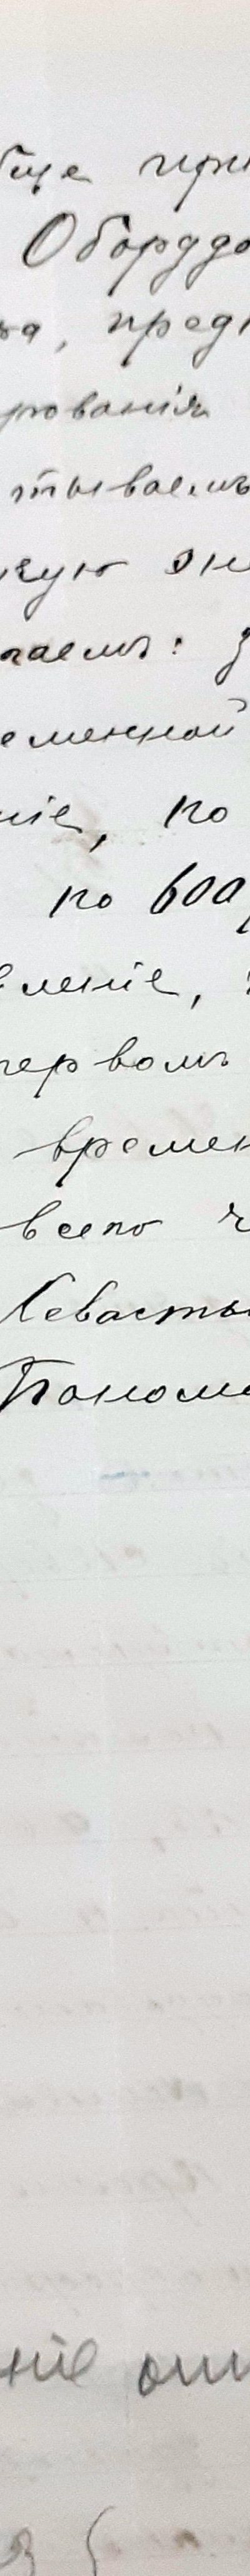 бще при
Оборудо
ва, пред
рованія
тываемъ
кую эн
чаемъ: з
еменной
ніе, по
по 600
вленіе,
первомъ
времен
всего ч
Севасть
Пономо
ніе отт